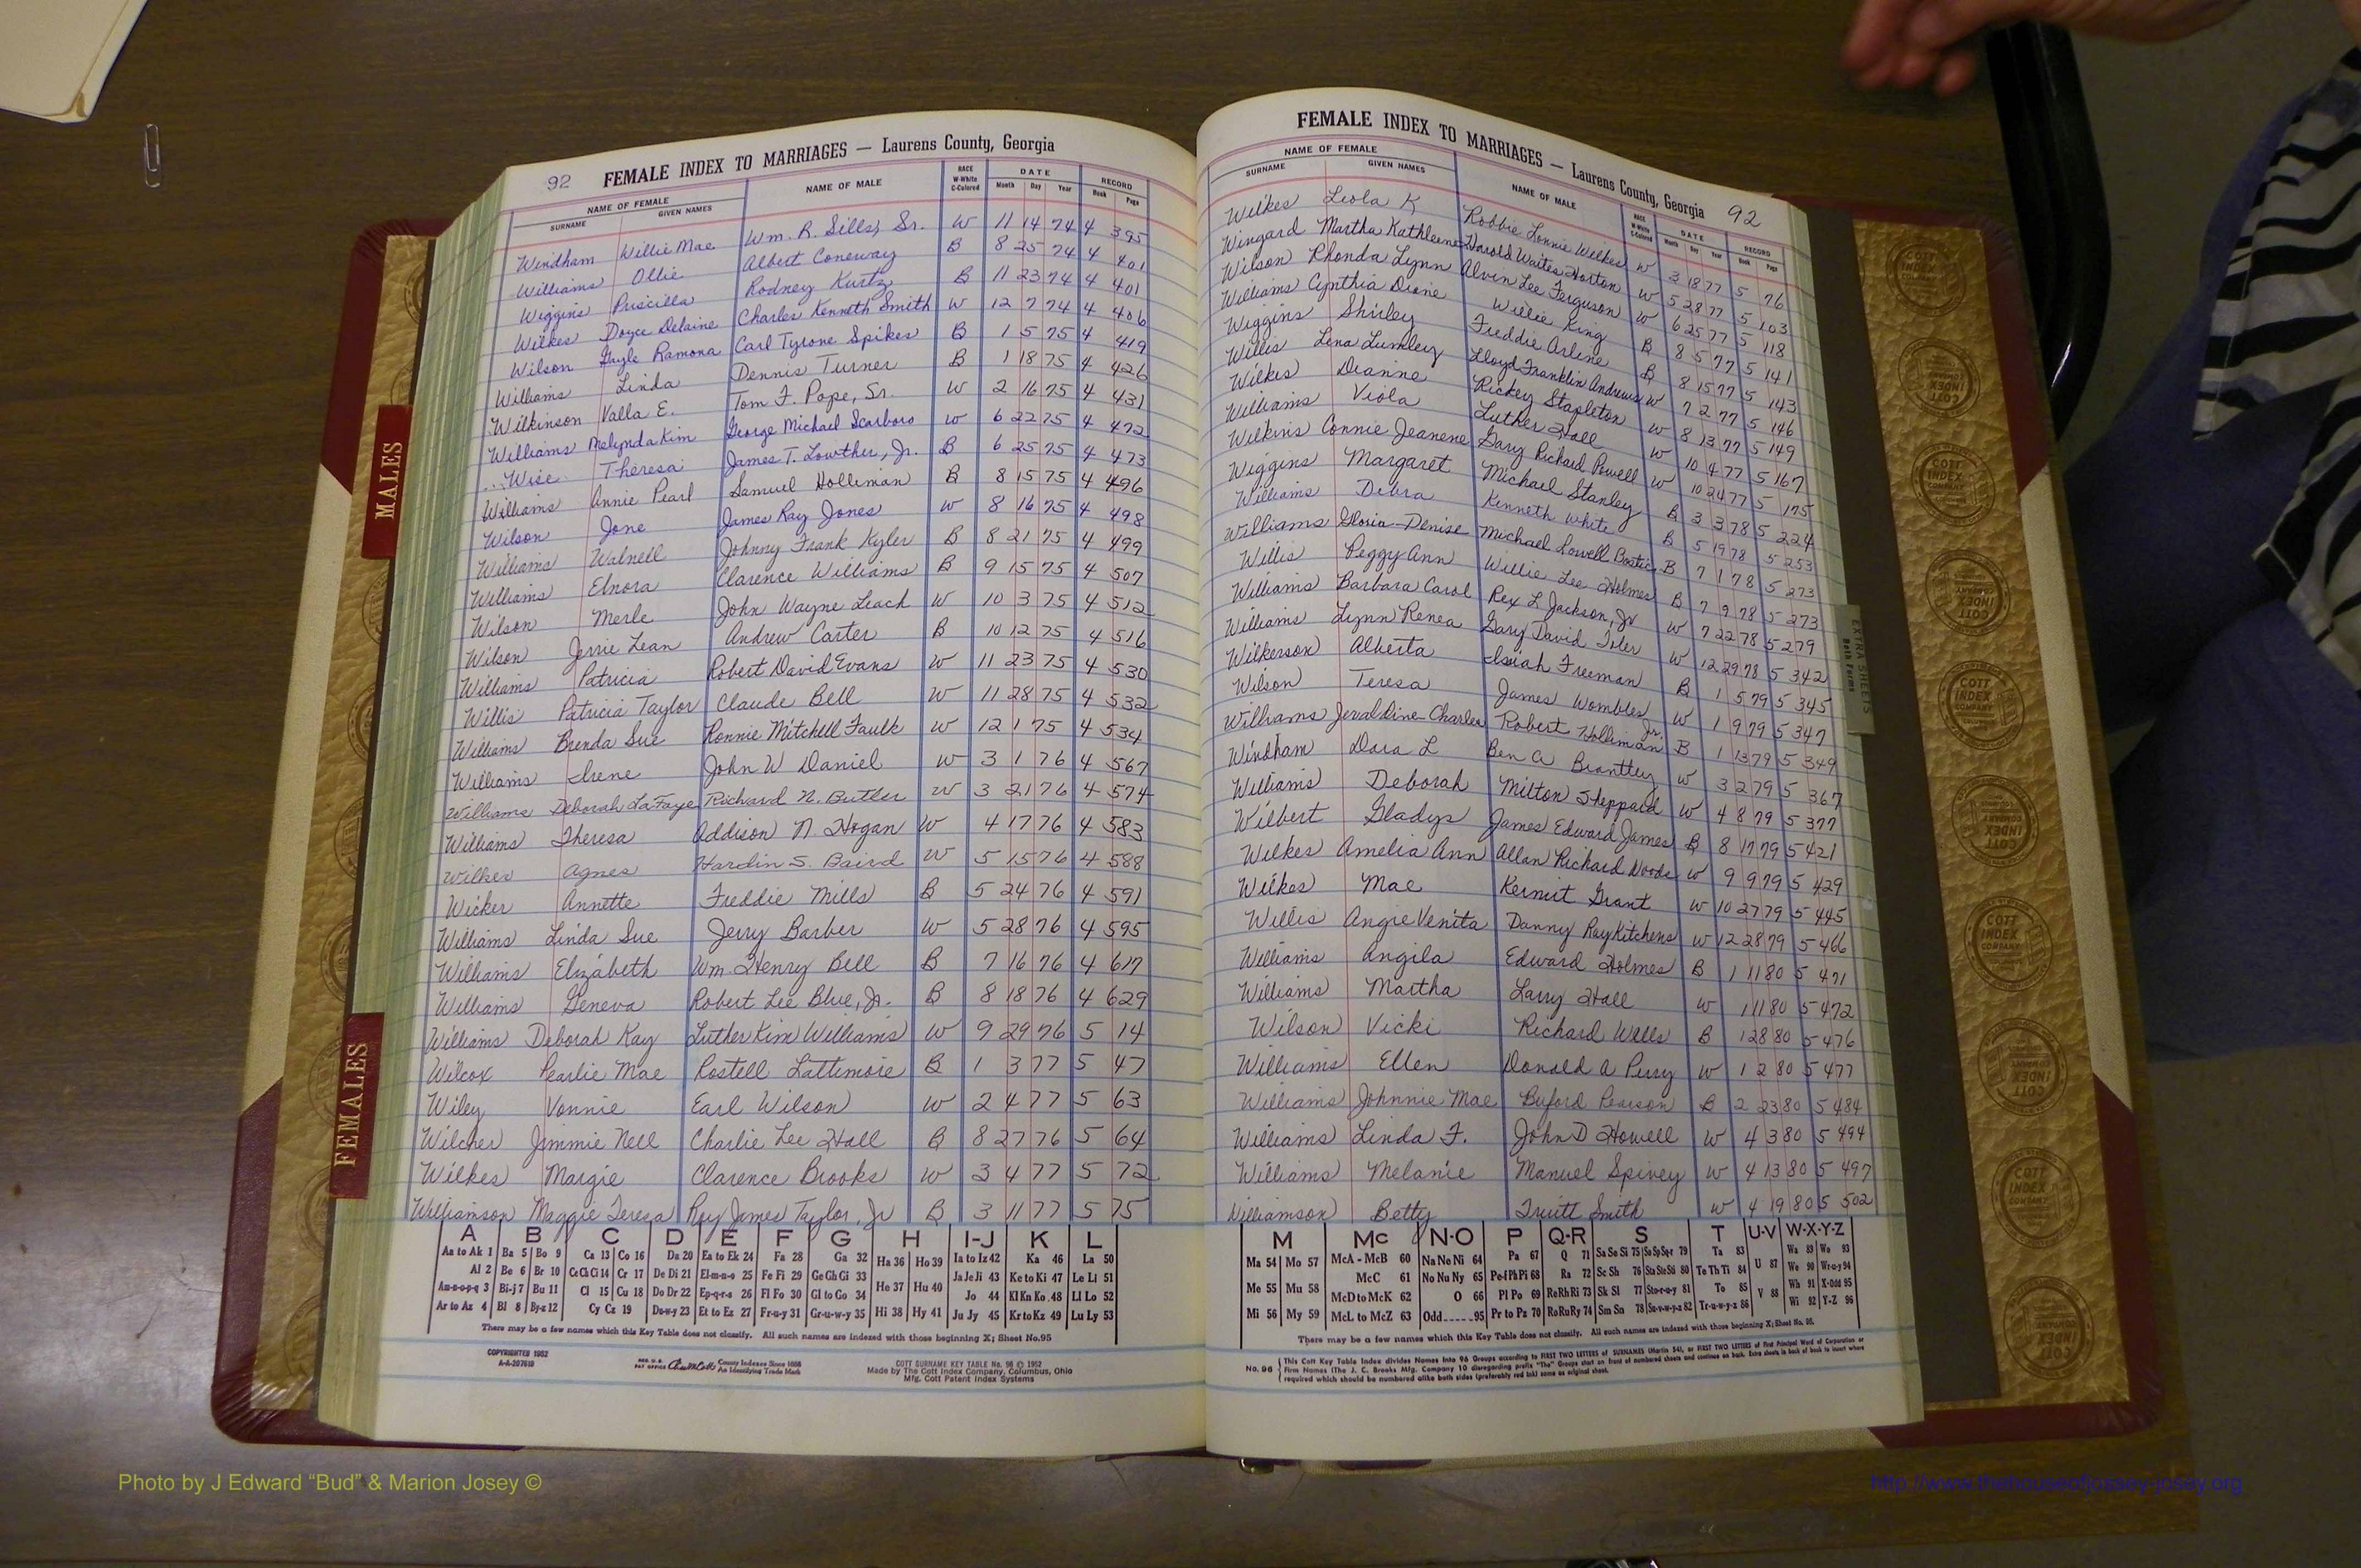 92 FEMALE INDEX TO MARRIAGES — Laurens County, Georgia
NAME OF FEMALE NAME OF MALE RACE W-White C-Colored DATE RECORD
SURNAME GIVEN NAMES Month Day Year Book Page
Windham Willie Mae Wm. R. Sills, Sr. W 11 14 74 4 395
Williams Ollie Albert Coneway B 8 25 74 4 401
Wiggins Priscilla Rodney Kurtz B 11 23 74 4 401
Wilkes Doyce Delaine Charles Kenneth Smith W 12 7 74 4 406
Wilson Gayle Ramona Carl Tyrone Spikes B 1 5 75 4 419
Williams Linda Dennis Turner B 1 18 75 4 426
Wilkinson Valla E. Tom F. Pope, Sr. W 2 16 75 4 431
Williams Melynda Kim George Michael Scarboro W 6 22 75 4 472
Wise Theresa James T. Lowther, Jr. B 6 25 75 4 473
Williams Annie Pearl Samuel Holliman B 8 15 75 4 496
Wilson Jone James Ray Jones W 8 16 75 4 498
Williams Walnell Johnny Frank Kyler B 8 21 75 4 499
Williams Elnora Clarence Williams B 9 15 75 4 507
Wilson Merle John Wayne Leach W 10 3 75 4 512
Wilson Jessie Lean Andrew Carter B 10 12 75 4 516
Williams Patricia Robert David Evans W 11 23 75 4 530
Willis Patricia Taylor Claude Bell W 11 28 75 4 532
Williams Brenda Sue Ronnie Mitchell Faulk W 12 1 75 4 534
Williams Irene John W Daniel W 3 1 76 4 567
Williams Deborah LaFaye Richard N. Butler W 3 21 76 4 574
Williams Theresa Addison N. Hogan W 4 17 76 4 583
Wilkes Agnes Hardin S. Baird W 5 15 76 4 588
Wicker Annette Freddie Mills B 5 24 76 4 591
Williams Linda Sue Jerry Barber W 5 28 76 4 595
Williams Elizabeth Wm. Henry Bell B 7 16 76 4 617
Williams Geneva Robert Lee Blue, Jr. B 8 18 76 4 629
Williams Deborah Kay Luther Kim Williams W 9 29 76 5 14
Wilcox Pearlie Mae Rostell Lattimore B 1 3 77 5 47
Wiley Vonnie Earl Wilson W 2 4 77 5 63
Wilcher Jimmie Nell Charlie Lee Hall B 8 27 76 5 64
Wilkes Margie Clarence Brooks W 3 4 77 5 72
Williamson Maggie Teresa Roy James Taylor, Jr B 3 11 77 5 75
A B C D E F G H I-J K L
Aa to Ak 1 Ba 5 Bo 9 Ca 13 Co 16 Da 20 Ea to Ek 24 Fa 28 Ga 32 Ha 36 Ho 39 Ia to Iz 42 Ka 46 La 50
Al 2 Be 6 Br 10 Ce Ch Ci 14 Cr 17 De Di 21 El-m-n-o 25 Fe Fi 29 Ge Gh Gi 33 He 37 Hu 40 Ja Je Ji 43 Ke to Ki 47 Le Li 51
An-n-o-p-q 3 Bi-j 7 Bu 11 Cl 15 Cu 18 Do Dr 22 Ep-q-r-s 26 Fl Fo 30 Gl to Go 34 Jo 44 Kl Kn Ko 48 Ll Lo 52
Ar to Az 4 Bl 8 By-z 12 Cy Cz 19 Du-w-y 23 Et to Ez 27 Fr-u-y 31 Gr-u-w-y 35 Hi 38 Hy 41 Ju Jy 45 Kr to Kz 49 Lu Ly 53
There may be a few names which this Key Table does not classify. All such names are indexed with those beginning X; Sheet No. 95
COPYRIGHTED 1952
A-A-207610
County Indexes Since 1888
An Identifying Trade Mark
COTT SURNAME KEY TABLE No. 96 © 1952
Made by The Cott Index Company, Columbus, Ohio
Mfg. Cott Patent Index Systems
FEMALE INDEX TO MARRIAGES — Laurens County, Georgia 92
NAME OF FEMALE NAME OF MALE RACE W-White C-Colored DATE RECORD
SURNAME GIVEN NAMES Month Day Year Book Page
Wilkes Leola K Robbie Lonnie Wilkes W 3 18 77 5 76
Wingard Martha Kathleene Harold Waites Horton W 5 28 77 5 103
Wilson Rhonda Lynn Alvin Lee Ferguson W 6 25 77 5 118
Williams Cynthia Diane Willie King B 8 5 77 5 141
Wiggins Shirley Freddie Arline B 8 15 77 5 143
Willis Lena Lumley Lloyd Franklin Andrews W 7 2 77 5 146
Wilkes Dianne Rickey Stapleton W 8 13 77 5 149
Williams Viola Luther Hall W 10 4 77 5 167
Wilkins Connie Jeanene Gary Richard Powell W 10 24 77 5 175
Wiggins Margaret Michael Stanley B 3 3 78 5 224
Williams Debra Kenneth White B 5 19 78 5 253
Williams Gloria-Denise Michael Lowell Bostic B 7 1 78 5 273
Willis Peggy Ann Willie Lee Holmes B 7 9 78 5 273
Williams Barbara Carol Rex L Jackson, Jr W 7 22 78 5 279
Williams Lynn Renea Gary David Toler W 12 29 78 5 342
Wilkerson Alberta Isiah Freeman B 1 5 79 5 345
Wilson Teresa James Wombles W 1 9 79 5 347
Williams Jeraldine-Charles Robert Holliman Jr. B 1 13 79 5 349
Windham Dora L Ben A Brantley W 3 2 79 5 367
Williams Deborah Milton Sheppard W 4 8 79 5 377
Wilbert Gladys James Edward James B 8 17 79 5 421
Wilkes Amelia Ann Allan Richard Woods W 9 9 79 5 429
Wilkes Mae Kermit Grant W 10 27 79 5 445
Willis Angie Venita Danny Ray Kitchens W 12 28 79 5 466
Williams Angila Edward Holmes B 1 1 80 5 471
Williams Martha Larry Hall W 1 11 80 5 472
Wilson Vicki Richard Wells B 1 28 80 5 476
Williams Ellen Donald A Perry W 1 2 80 5 477
Williams Johnnie Mae Buford Pearson B 2 23 80 5 484
Williams Linda F. John D Howell W 4 3 80 5 494
Williams Melanie Manuel Spivey W 4 13 80 5 497
Williamson Betty Truitt Smith W 4 19 80 5 502
M Mc N-O P Q-R S T U-V W-X-Y-Z
Ma 54 Mo 57 McA - McB 60 Na Ne Ni 64 Pa 67 Q 71 Sa Se Si 75 So Sp Sq-r 79 Ta 83 U 87 Wa 89 Wo 93
Me 55 Mu 58 McC 61 No Nu Ny 65 Pe-f Ph Pi 68 Ra 72 Sc Sh 76 Sta Ste Sti 80 Te Th Ti 84 We 90 Wr-o-y 94
McD to McK 62 O 66 Pl Po 69 Re Rh Ri 73 Sk Sl 77 Sto-r-u-y 81 To 85 V 88 Wh 91 X-Odd 95
Mi 56 My 59 McL to McZ 63 Odd......95 Pr to Pz 70 Ro Ru Ry 74 Sm Sn 78 Su-v-w-y-z 82 Tr-u-w-y-z 86 Wi 92 Y-Z 96
There may be a few names which this Key Table does not classify. All such names are indexed with those beginning X; Sheet No. 95.
No. 96 This Cott Key Table Index divides Names into 96 Groups according to FIRST TWO LETTERS of SURNAMES (Martin 54), or FIRST TWO LETTERS of First Principal Word of Corporation or
Firm Names (The J. C. Brooks Mfg. Company 10 disregarding prefix "The" Groups start on front of numbered sheets and continue on back. Extra sheets in back of book to insert where
required which should be numbered alike both sides (preferably red ink) same as original sheet.
MALES
FEMALES
EXTRA SHEETS
Both Forms
COTT INDEX COMPANY
Photo by J Edward “Bud” & Marion Josey ©
http://www.thehouseofjossey-josey.org